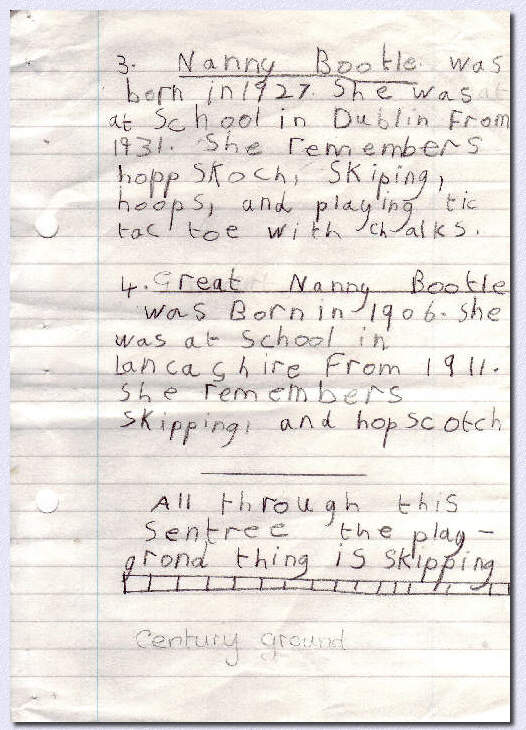 3. Nanny Bootle was
born in 1927. She was at
at School in Dublin From
1931. She remembers
hopp skoch, Skiping,
hoops, and playing tic
tac toe with chalks.
4. Great Nanny Bootle
was Born in 1906. She
was at School in
Lancashire From 1911.
She remembers
Skipping, and hop scotch
All through this
Sentree the play-
grond thing is skipping
Century ground